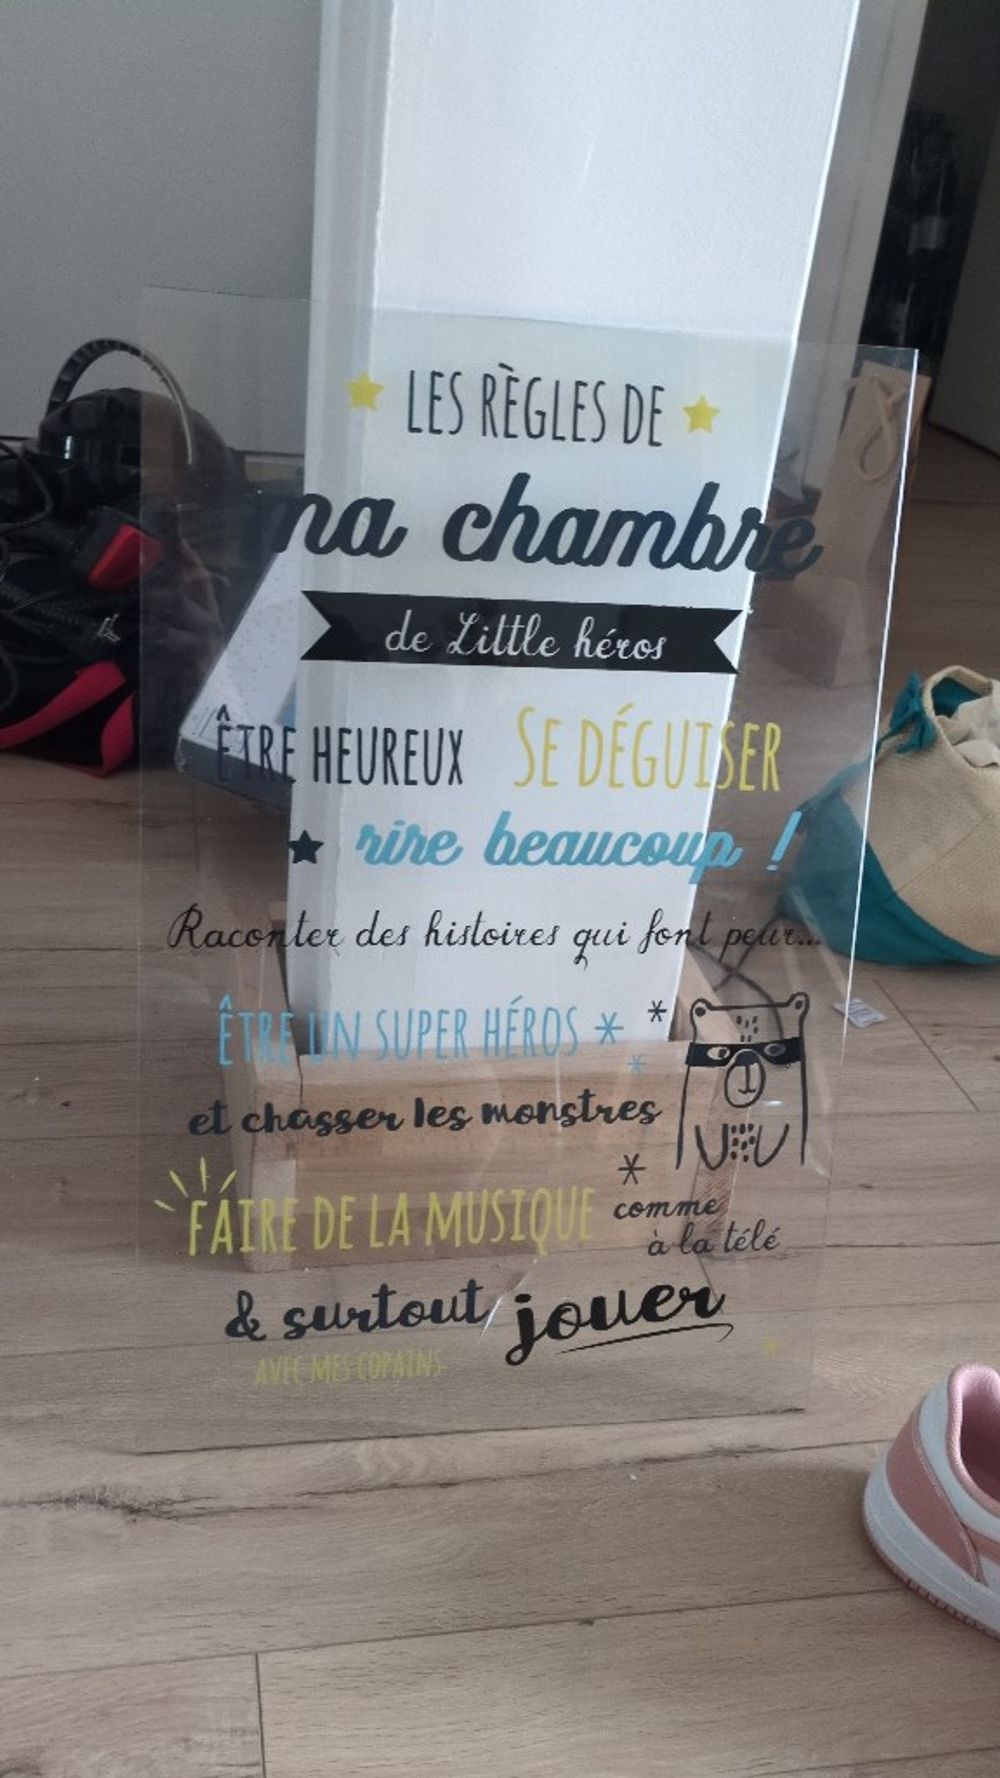 LES RÈGLES DE
ma chambre
de Little héros
ÊTRE HEUREUX SE DÉGUISER
rire beaucoup !
Raconter des histoires qui font peur...
ÊTRE UN SUPER HÉROS
et chasser les monstres
FAIRE DE LA MUSIQUE comme
à la télé
& surtout jouer
AVEC MES COPAINS